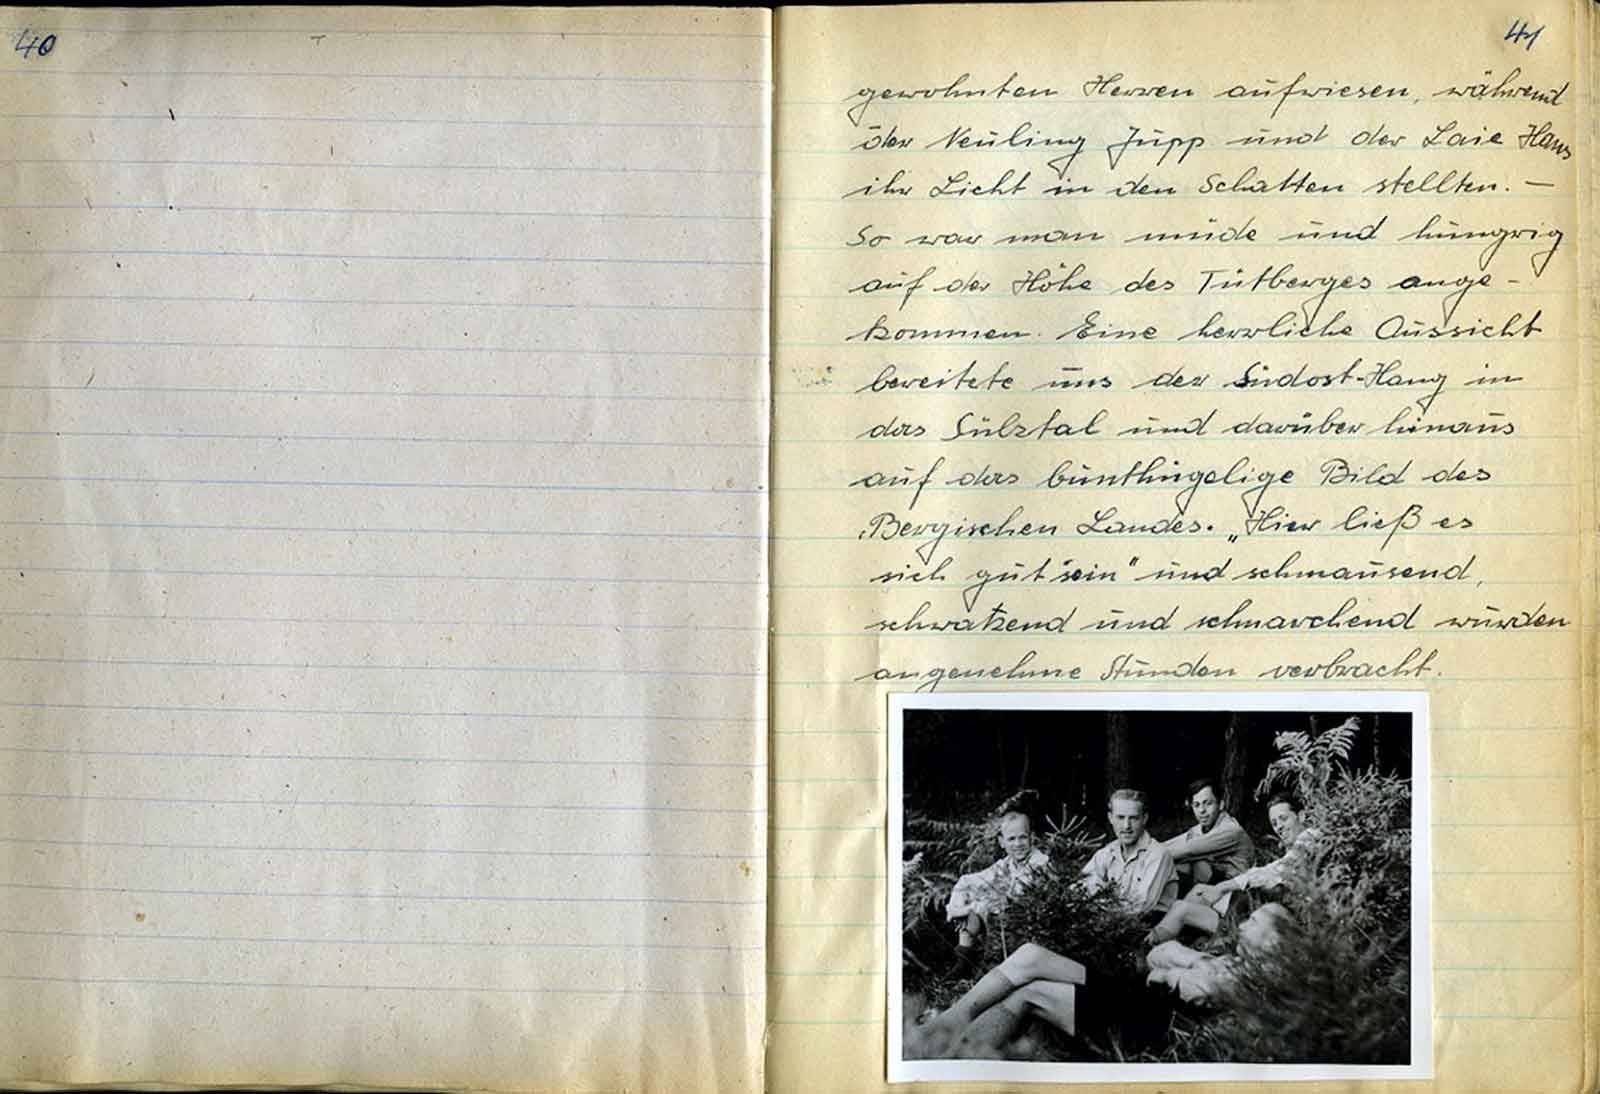 40
41
gewohnten Herren aufwiesen, während
der Neuling Jupp und der Laie Hans
ihr Licht in den Schatten stellten. —
So war man müde und hungrig
auf der Höhe des Tütberges ange-
kommen. Eine herrliche Aussicht
bereitete uns der Südost-Hang in
das Sülztal und darüber hinaus
auf das bunthügelige Bild des
Bergischen Landes. „Hier ließ es
sich gut sein" und schmausend,
schwatzend und schnarchend wurden
angenehme Stunden verbracht.